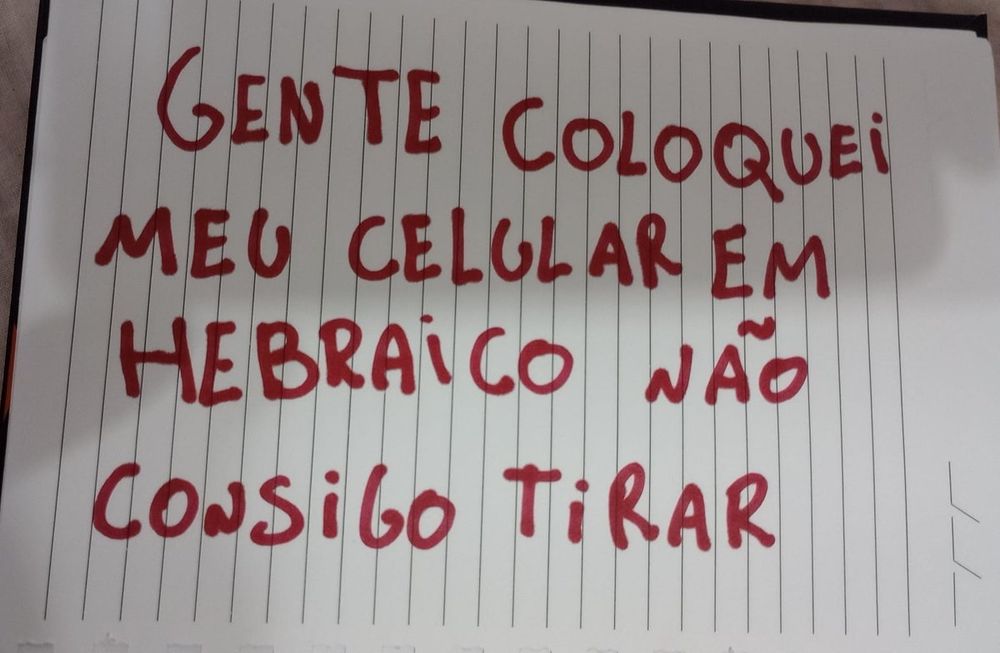 GENTE COLOQUEI
MEU CELULAR EM
HEBRAICO NÃO
CONSIGO TIRAR